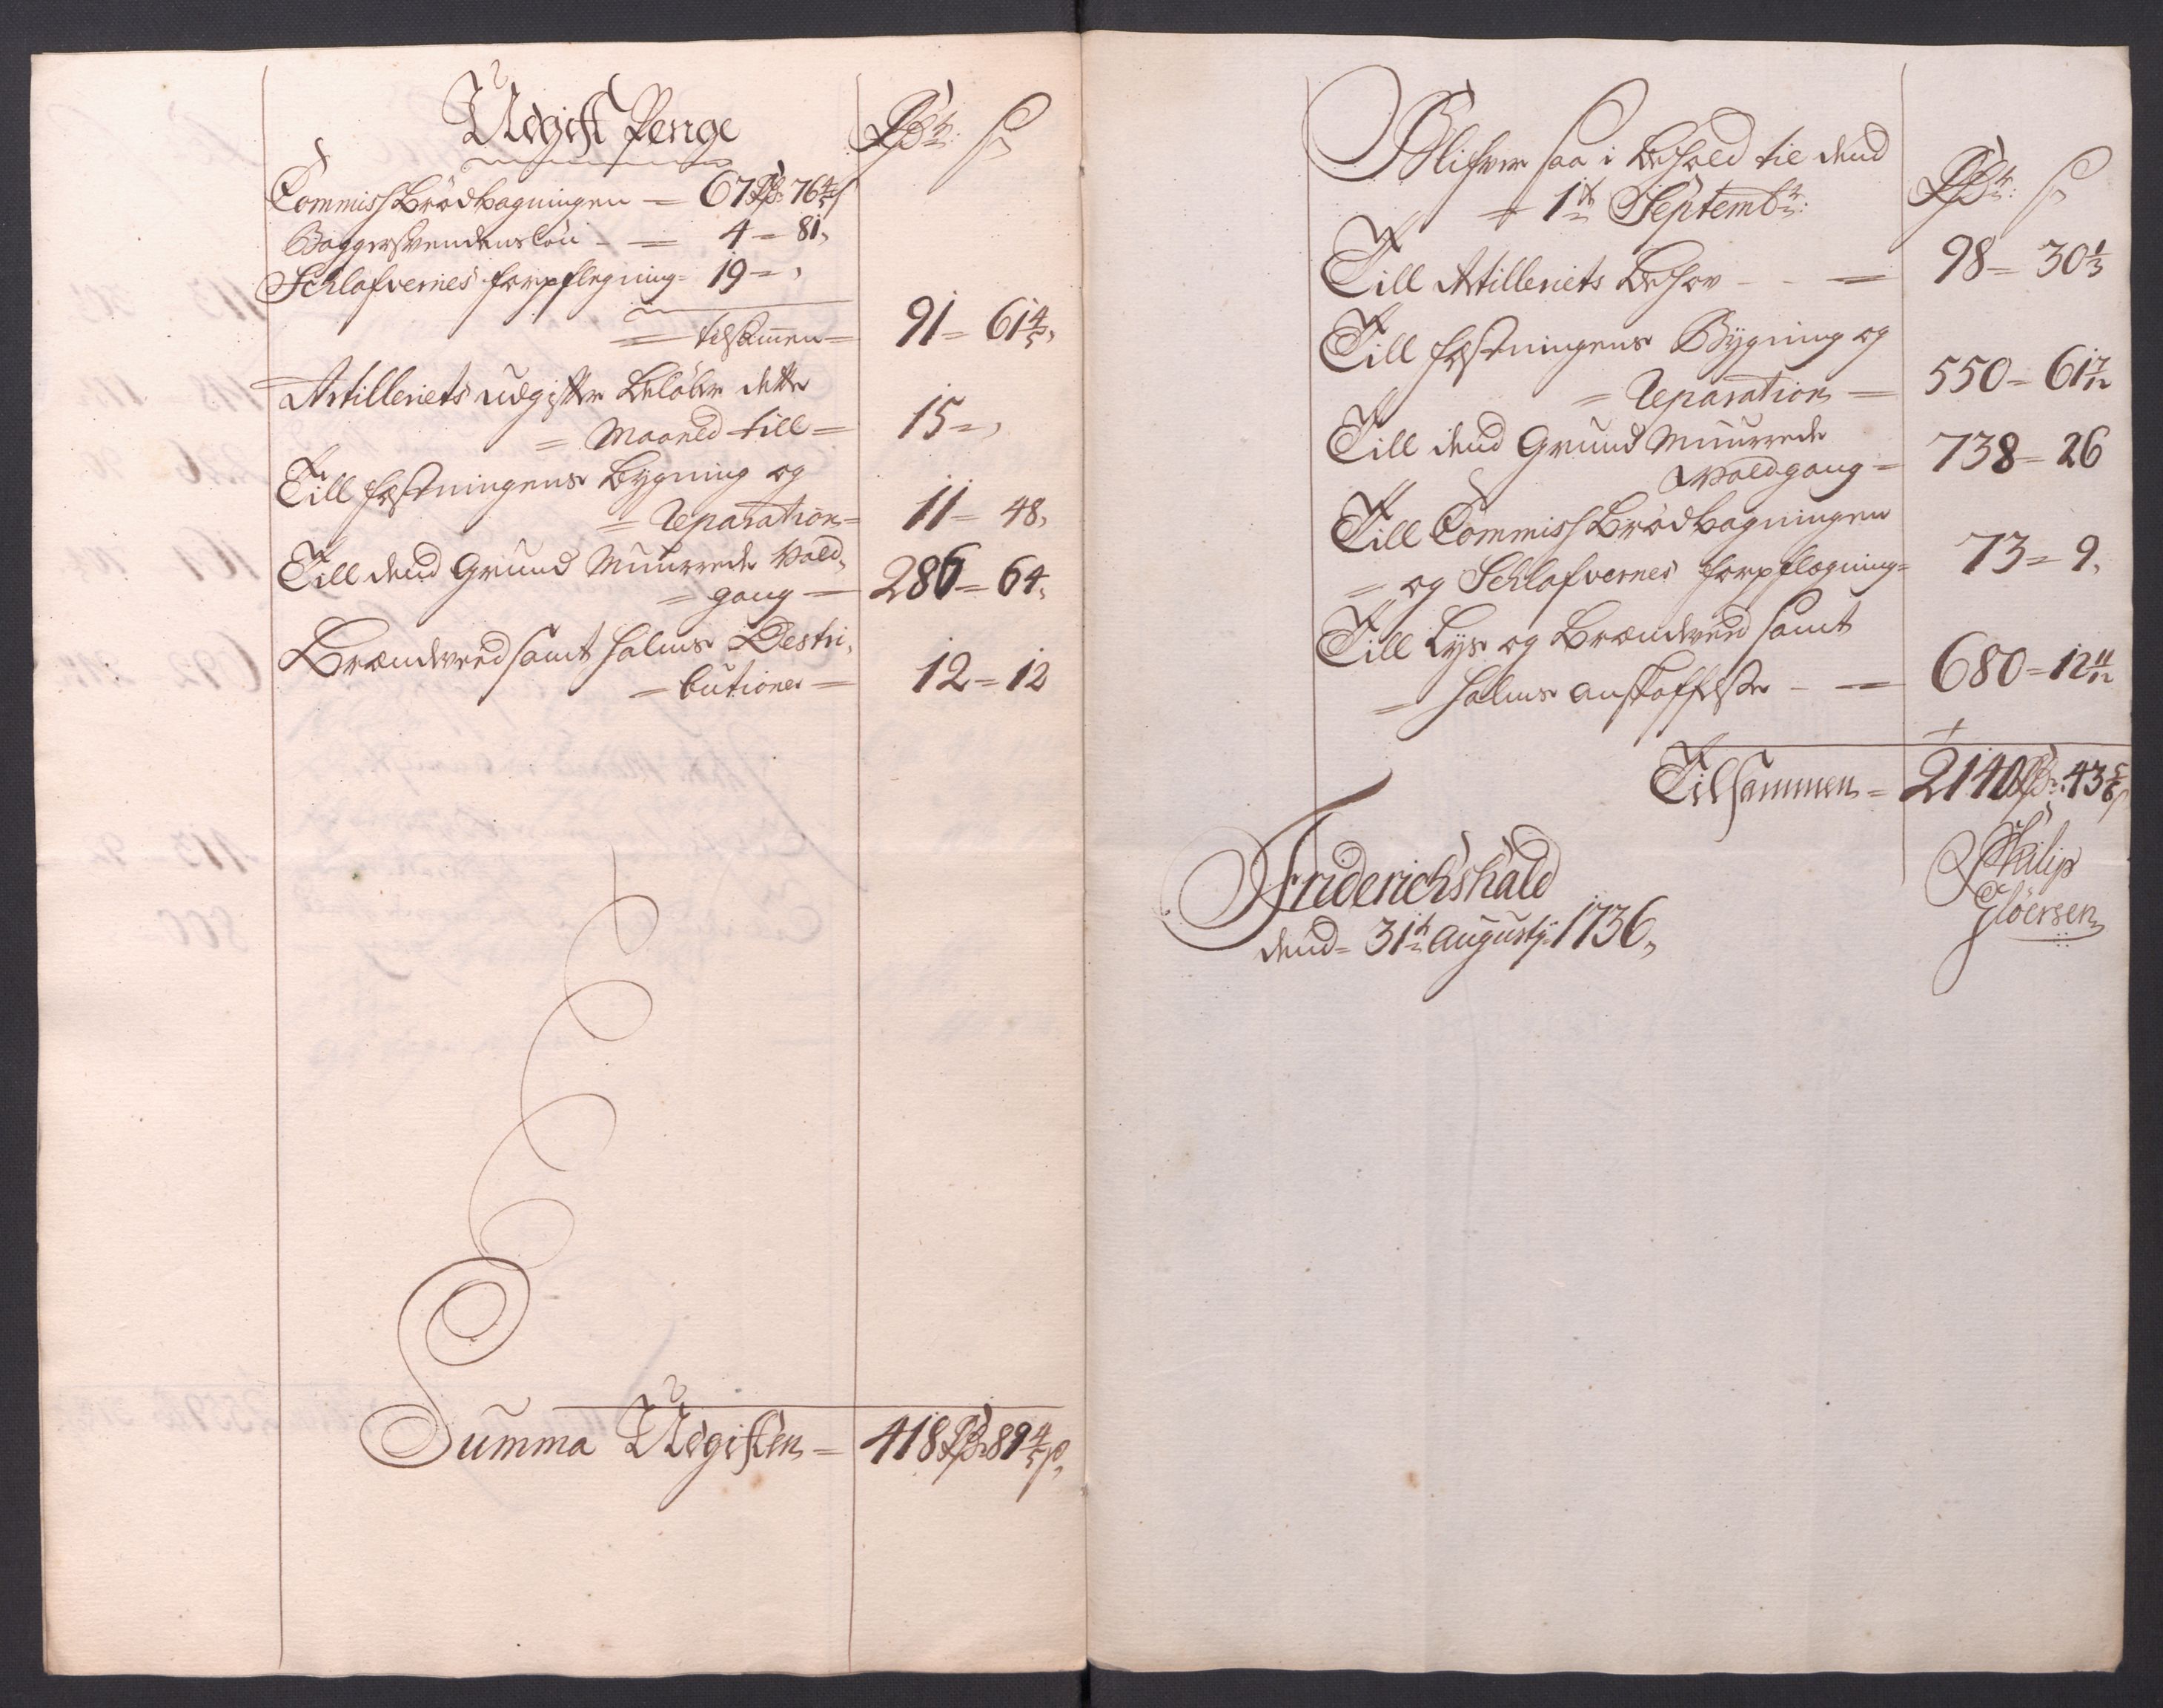 Udgift Penge
Rdr: ß
CommissBrödbagningen = 67 Rd: 76 4/5 ß
Baggersvendenslön - = 4 = 81,
Schlafvernes forpflegning = 19 = ,
= tilsamen = 91 = 61 4/5,
Artilleriets udgifter beløber dette
= Maaned till = 15 = ,
Till festningens bygning og
= Reparation = 11 = 48,
Till dend Grund Muurrede Vold,
= gang = 286 = 64,
Brændeveed samt halms Destri,
= butioner = 12 = 12
Summa Udgiften = 418 Rd: 89 4/5 ß,
Blifver saa i behold til dend
= 1te Septembr:
Rdr: ß
Till Artilleriets behov - - = 98 = 30 1/3
Till festningens Bygning og
= Reparation = 550 = 61 7/12
Till dend Grund Muurrede
Voldgang = 738 = 26
Till CommissBrödbagningen
= og Schlafvernes forpflegning = 73 = 9,
Till Lys og Brændeveed samt
= halms anskaffelse - = 680 = 12 11/12
Tilsammen = 2140 Rd: 43 5/6 ß
Friderichshald
dend = 31te Augustij 1736,
Philip
Gløersen